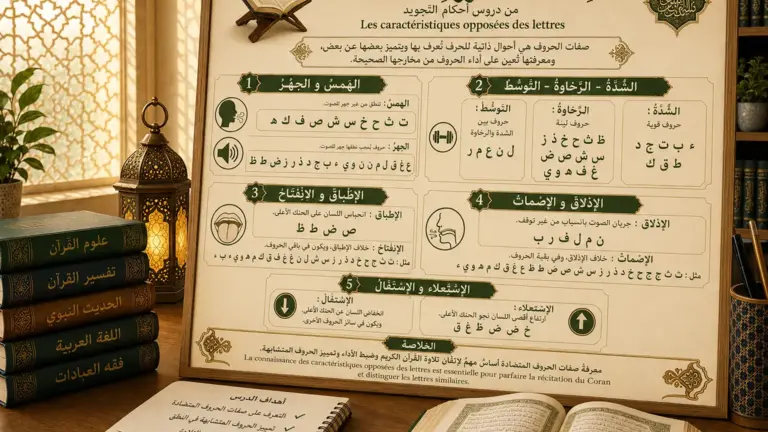 من دروس أحكام التجويد
Les caractéristiques opposées des lettres
صفات الحروف هي أحوال ذاتية للحرف تُعرف بها ويتميز بعضها عن بعض،
ومعرفتها تُعين على أداء الحروف من مخارجها الصحيحة.
1 الهمسُ و الجهْرُ
الهمسُ : تنطق من غير جهر للصوت.
ت ث ح خ س ش ص ف ك ه
الجهرُ :
2 الشّدَّةُ - الرَّخاوةُ - التَّوسُّطُ
الشّدَّةُ :
حروف قوية
ء ب ت ج د
ط ق ك
الرَّخاوةُ :
حروف لينة
ظ ث ح خ ذ ز
س ش ص ض
غ ف ه و ي
التَّوسُّطُ :
حروف بين
الشدة والرخاوة
ل ن ع م ر
3 الإطباق و الانْفتَاح
الإطباق : انحباس اللسان على الحنك الأعلى.
ص ض ط ظ
الإنفتاح : خلاف الإطباق، ويكون في باقي الحروف.
4 الإذلاق و الإصْماتُ
الإذلاق : جريان الصوت بانسياب من غير توقف.
ن م ل ف ر ب
الإصْماتُ : خلاف الإذلاق، وفي بقية الحروف.
5 الإسْتعلاء و الإسْتفَالُ
الإستعلاء :
ارتفاع أقصى اللسان نحو الحنك الأعلى.
خ ض ص ظ غ ق
الإستفالُ :
انخفاض اللسان عن الحنك الأعلى،
ويكون في سائر الحروف الأخرى.
الخلاصة
معرفة صفات الحروف المتضادة أساسٌ مهمٌّ لإتقان تلاوة القرآن الكريم وضبط الأداء وتمييز الحروف المتشابهة.
La connaissance des caractéristiques opposées des lettres est essentielle pour parfaire la récitation du Coran
et distinguer les lettres similaires.
علوم القرآن
تفسير القرآن
الحديث النبوي
اللغة العربية
فقه العبادات
أهداف الدرس
التعرف على صفات الحروف المتضادة
تمييز الحروف المتشابهة في النطق